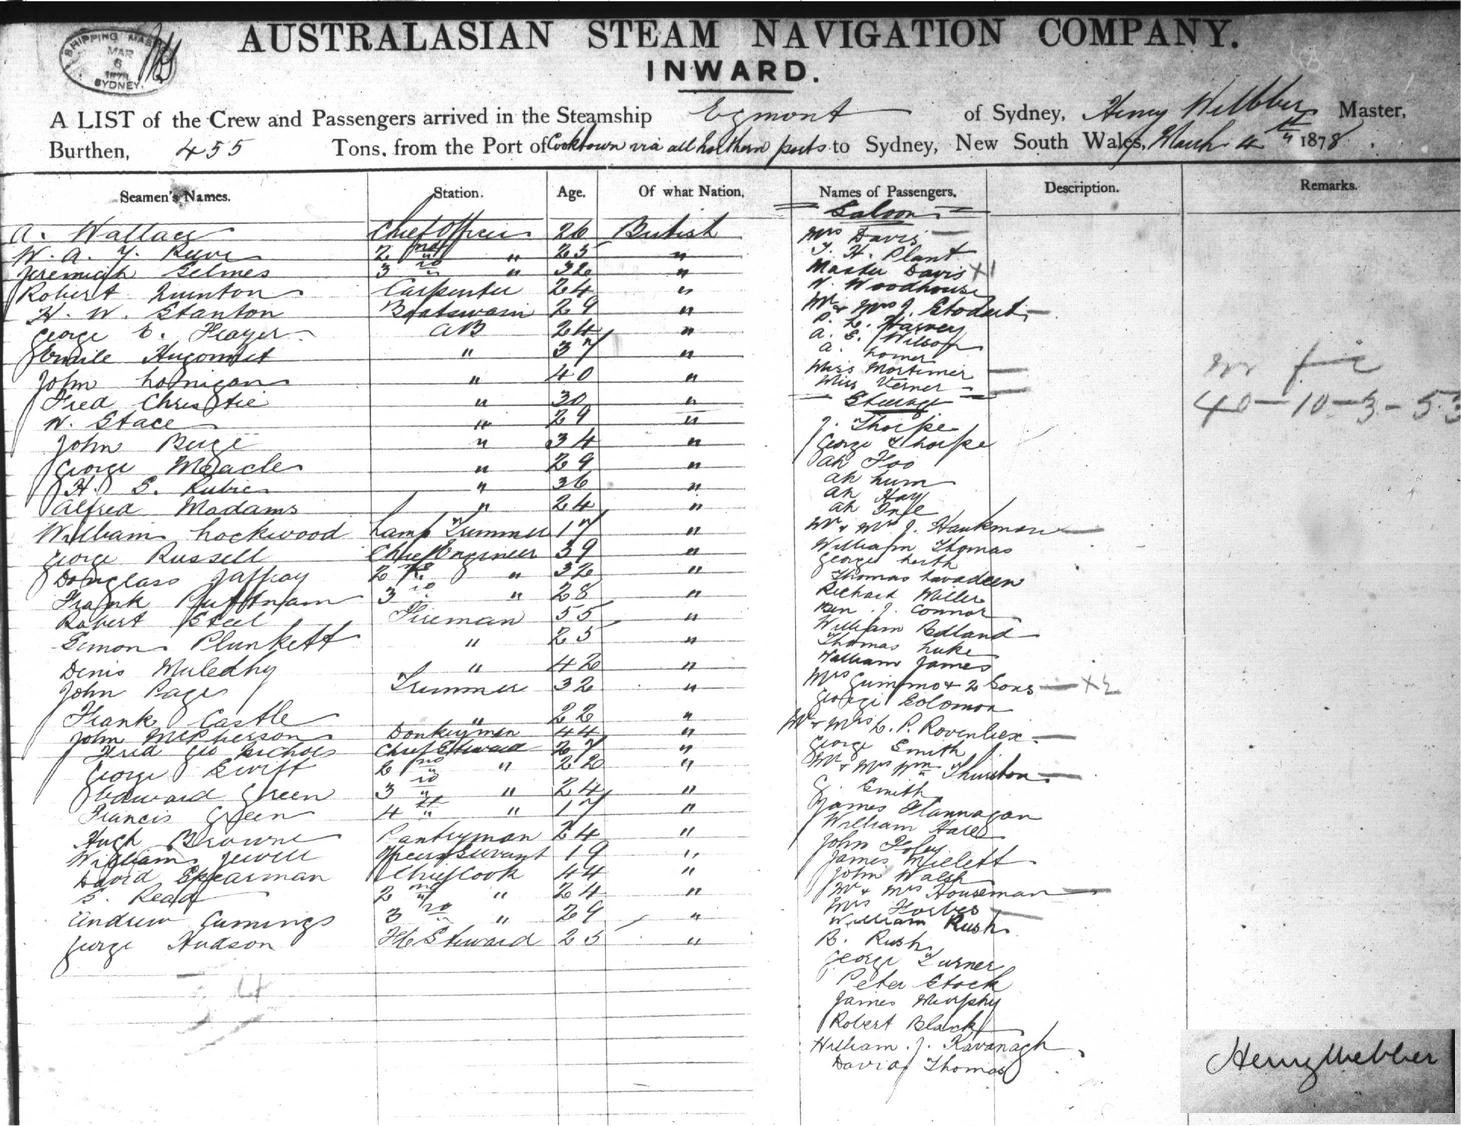 SHIPPING MASTER
MAR
6
1878
SYDNEY.
AUSTRALASIAN STEAM NAVIGATION COMPANY.
INWARD.
A LIST of the Crew and Passengers arrived in the Steamship Egmont of Sydney, Henry Webber Master,
Burthen, 455 Tons, from the Port of Cooktown via all Northern ports to Sydney, New South Wales, March 4th 1878.
Seamen's Names. Station. Age. Of what Nation.
A. Wallace Chief Officer 26 British
W. A. Y. Reeve 2nd " 25 "
Jeremiah Selmes 3rd " 32 "
Robert Quinton Carpenter 24 "
H. W. Stanton Boatswain 29 "
George E. Frayer AB 24 "
Emile Augonnet " 37 "
John Lonnigan " 40 "
Fred Christie " 30 "
W. Stace " 29 "
John Berge " 34 "
George Meacle " 29 "
H. S. Rubie " 36 "
Alfred Madams " 24 "
William Lockwood Lamp Trimmer 17 "
George Russell Chief Engineer 39 "
Douglass Jaffray 2nd " 32 "
Frank Puttnam 3rd " 28 "
Robert Steel Fireman 55 "
Simon Plunkett " 25 "
Denis Muledhy " 42 "
John Page Trimmer 32 "
Frank Castle " 22 "
John McPherson Donkeyman 44 "
Fred Geo Nichols Chief Steward 27 "
George Swift 2nd " 22 "
Edward Green 3rd " 24 "
Francis Green 4th " 17 "
Hugh Browne Pantryman 24 "
William Jewell Officers Servant 19 "
David Spearman Chief Cook 44 "
S. Read 2nd " 24 "
Andrew Cumings 3rd " 29 "
George Hudson F C Steward 25 "
Names of Passengers. Description. Remarks.
Saloon
Mrs Davis
T. H. Plant
Master Davis X1
W. Woodhouse
Mr & Mrs J. Stodart
P. L. Harvey
A. E. Wilson
A. Lomer
Miss Mortimer
Miss Verner
Steerage
J. Thorpe
George Thorpe
Ah Foo
Ah Lum
Ah Hay
Ah
Mr & Mrs J. Hawkman
William Thomas
George Keith
Thomas Lavadeen
Richard Miller
J. Connor
William Bolland
Thomas Luke
William James
Mrs Gummo & 2 Sons X2
George Solomon
Mr & Mrs C. P. Rovenliex
George Smith
Mr & Mrs Wm Thurston
G. Smith
James Flannagan
William Hale
John Foley
James Millett
John Walsh
Mr & Mrs Houseman
Mrs Forbes
William Rush
B. Rush
George Turner
Peter Stock
James Murphy
Robert Black
William J. Kavanagh
David Thomas
40-10-3-53
Henry Webber